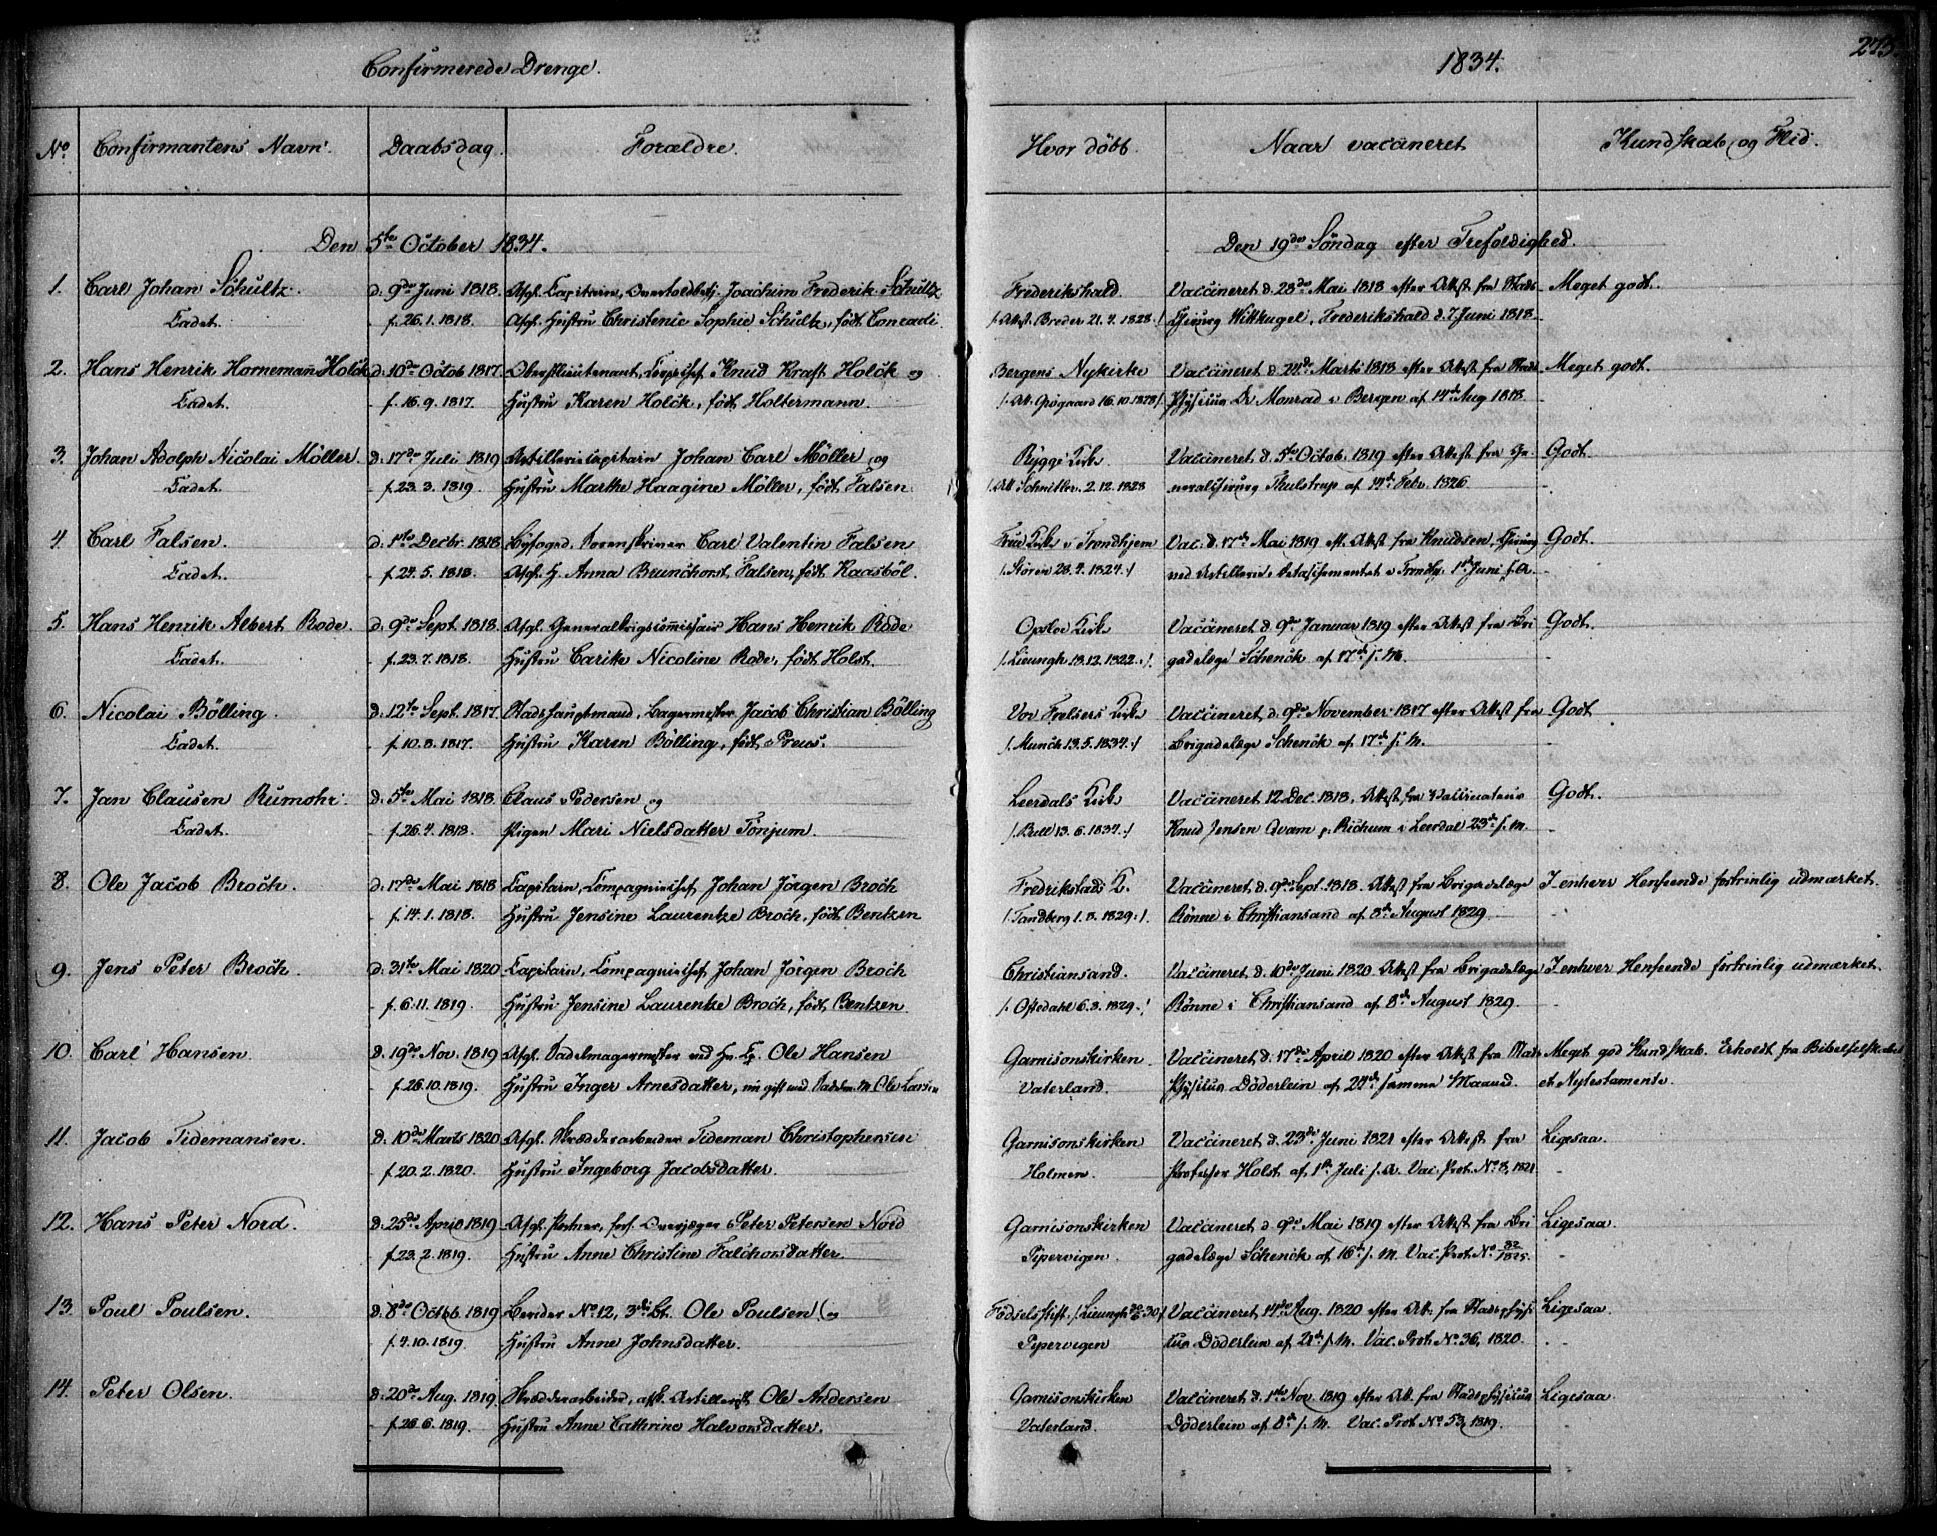 Confirmerede Drenge.
1834.
275.
No. Confirmantens Navn. Daabsdag. Forældre. Hvor döbt. Naar vaccineret Kundskab og Flid.
Den 5te October 1834. Den 19de Söndag efter Trefoldighed.
1. Carl Johan Schultz. d. 9de Juni 1818. Afgl. Capitain, Joachim Frederik Schultz Frederikshald. Vaccineret d. 28de Mai 1818 efter Attest fra Stads Meget godt.
Cadet. f. 26.1.1818. Afgl. Hustru Christenie Sophie Schultz, født Conradi /: Attest. Breder 21.4.1828 :/ Chirurg Wittkugel, Frederikshald d. 7. Juni 1818.
2. Hans Henrik Horneman Holck d. 10de Octob 1817. Oberstlieutenant, Knud Kraft Holck og Bergens Nykirke Vaccineret d. 24de Marti 1818 efter Attest fra Stads Meget godt.
Cadet. f. 16.9.1817. Hustru Karen Holck, født Holtermann. /: Att. Grögaard 16.10.1828 :/ Physicus Dr Monrad i Bergen af 14de Aug 1818.
3. Johan Adolph Nicolai Möller. d. 17de Juli 1819 Artillericapitain Johan Carl Möller og Rygge Kirke. Vaccineret d. 5te Octob. 1819 efter Attest fra Ge- Godt.
Cadet. f. 23.3.1819. Hustru Marthe Haagine Möller, født Falsen. /: Att. Schnitler. 2.12.1828 neralchirurg Thulstrup af 14de Febr. 1826
4. Carl Falsen. d. 1ste Decbr. 1818 Byfoged, Sorenskriver Carl Valentin Falsen Frue Kirke i Trondhjem Vac. d. 17de Mai 1819 eft. Attest fra Knudsen, Chirurg Godt.
Cadet. f. 24.5.1818. Afgl. H. Anna Brunchorst Falsen, født Kaasböl. /: Stören 28.4.1824 :/ ved Artilleri Detaschementet i Trondhj. 1ste Juni s. A.
5. Hans Henrik Albert Rode. d. 9de Sept. 1818. Afgl. Generalkrigscommissair Hans Henrik Rode Opsloe Kirke Vaccineret d. 9de Januar 1819 efter Attest fra Bri Godt.
Cadet. f. 23.7.1818. Hustru Carike Nicoline Rode, født Holst. /: Lieungh 18.12.1822. :/ gadelæge Schenck af 17de s. M.
6. Nicolai Bölling. d. 12te Sept. 1817. Stadshauptmand, Bagermester Jacob Christian Bölling Vor Frelsers Kirke Vaccineret d. 9de November 1817 efter Attest fra Godt
Cadet. f. 10.8.1817. Hustru Karen Bölling, født Preus. /: Munch 13.5.1834 :/ Brigadelæge Schenck af 17de s. M.
7. Jan Clausen Rumohr. d. 5te Mai 1818. Claus Pedersen og Leerdals Kirke Vaccineret 12 Dec. 1818, Attest fra Vaccinateur Godt.
Cadet. f. 26.4.1818. Pigen Mari Nielsdatter Tönjum. /: Bull 13.6.1834 :/ Knud Jensen Qvam p. Richum i Leerdal 23de s. M.
8. Ole Jacob Broch. d. 17de Mai 1818 Capitain, Compagniechef Johan Jörgen Broch Fredrikstads K. Vaccineret d. 9de Sept. 1818. Attest fra Brigadelæge I enhver Henseende fortrinlig udmærket.
f. 14.1.1818. Hustru Jensine Laurentze Broch, født Bentzen /: Tandberg 1.8.1829 :/. Rönne i Christiansand af 8de August 1829
9. Jens Peter Broch. d. 31te Mai 1820 Capitain, Compagniechef Johan Jörgen Broch Christiansand. Vaccineret d. 10de Juni 1820. Attest fra Brigadelæge I enhver Henseende fortrinlig udmærket.
f. 6.11.1819. Hustru Jensine Laurentze Broch, født, Bentzen. /: Oftedahl 6.8.1829 :/ Rönne i Christiansand af 8de August 1829.
10. Carl Hansen. d. 19de Nov. 1819 Afgl. Sadelmagermester ved Ole Hansen Garnisonskirken Vaccineret d. 17de April 1820 efter Attest fra Stads Meget god Kundskab. Erholdt fra Bibelselskabet
f. 26.10.1819. Hustru Inger Arnesdatter, nu gift med Ole Larsen Vaterland. Physicus Döderlein af 24de samme Maaned. et Nytestamente.
11. Jacob Tidemansen. d. 10de Marts 1820 Afgl. Skrædderarbeider Tideman Christophersen Garnisonskirken Vaccineret d. 23de Juni 1821 efter Attest fra Ligesaa.
f. 20.2.1820. Hustru Ingeborg Jacobsdatter. Holmen. Professor Holst af 1ste Juli s. A. Vac. Prot. No. 8, 1821.
12. Hans Peter Nord. d. 25de April 1819 Afgl. Portner, forh. Overjæger Peter Petersen Nord Garnisonskirken Vaccineret d. 9de Mai 1819 efter Attest fra Bri Ligesaa.
f. 23.2.1819. Hustru Anne Christine Falchorsdatter. Pipervigen. gadelæge Schenck af 16de s. M. Vac. Prot. No. 82/1825.
13. Poul Poulsen. d. 8de Octbb. 1819 Berider No. 12, Ole Poulsen og Födselsstift. /: Lieungh Vaccineret 14de Aug. 1820 efter Att. fra Stadsphysi Ligesaa.
f. 4.10.1819. Hustru Anne Johnsdatter. Pipervigen cus Döderlein af 21de s. M. Vac. Prot. No. 36, 1820.
14. Peter Olsen. d. 20de Aug. 1819. Skrædderarbeider, afsk. Artillerist Ole Andersen Garnisonskirken Vaccineret d. 1ste Nov. 1819 efter Att. fra Stadsphysicus Ligesaa
f. 26.6.1819. Hustru Anne Cathrine Halvorsdatter. Vaterland. Döderlein af 8de s. M. Vac. Prot. No. 53, 1819.